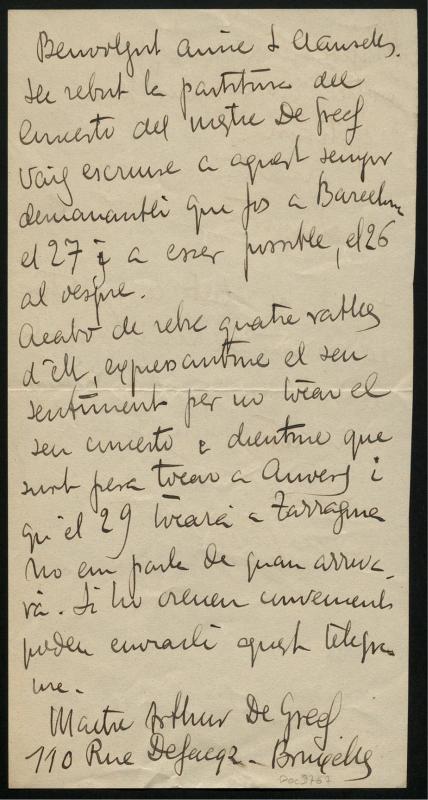 Benvolgut amic S Clausells.
He rebut la partitura del
Concerto del mestre De Greef
Vaig escriure a aquest sempre
demanantli que fos a Barcelona
el 27 i a esser possible, el 26
al vespre.
Acabo de rebre quatre ratlles
d'ell, expressantme el seu
sentiment per no tocar el
seu concerto i dientme que
surt pera tocar a Anvers i
qu'el 29 tocará a Tarragona
No em parla de quan arriva-
rà. Si ho creuen convenients
poden enviarli aquest telegra-
me.
Maitre Arthur De Greef
110 Rue Defacqz - Bruxelles
Doc 3767